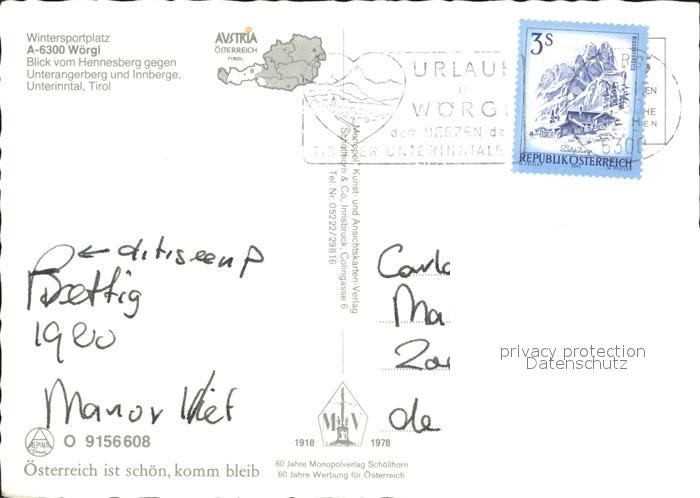 Wintersportplatz
A-6300 Wörgl
Blick vom Hennesberg gegen
Unterangerberg und Innberge,
Unterinntal, Tirol
AVSTRIA
ÖSTERREICH
TIROL
URLAUB
in
WÖRGL
dem HERZEN de
TIROLER UNTERINNTALS
3S
REPUBLIK ÖSTERREICH
6300
"Monopol" Kunst- und Ansichtskarten-Verlag
Schöllhorn & Co., Innsbruck, Colingasse 6
Tel. Nr. 05222/29816
← dit is een P
Prettig
1980
Manor Vliet
Carla
Ma
Za
de
privacy protection
Datenschutz
M V
1918 1978
60 Jahre Monopolverlag Schöllhorn
60 Jahre Werbung für Österreich
O 9156608
Österreich ist schön, komm bleib